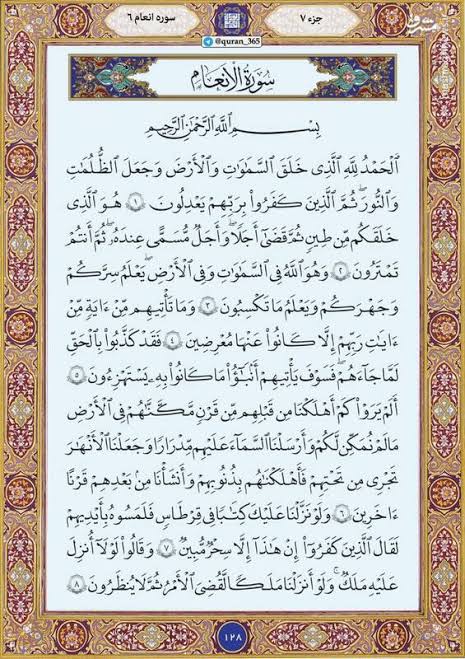 جزء ۷
سوره انعام ۶
@quran_365
سُورَةُ الْأَنْعَامِ
بِسْمِ اللَّهِ الرَّحْمَٰنِ الرَّحِيمِ
الْحَمْدُ لِلَّهِ الَّذِي خَلَقَ السَّمَاوَاتِ وَالْأَرْضَ وَجَعَلَ الظُّلُمَاتِ
وَالنُّورَ ۖ ثُمَّ الَّذِينَ كَفَرُوا بِرَبِّهِمْ يَعْدِلُونَ ۝١ هُوَ الَّذِي
خَلَقَكُمْ مِنْ طِينٍ ثُمَّ قَضَىٰ أَجَلًا ۖ وَأَجَلٌ مُسَمًّى عِنْدَهُ ۖ ثُمَّ أَنْتُمْ
تَمْتَرُونَ ۝٢ وَهُوَ اللَّهُ فِي السَّمَاوَاتِ وَفِي الْأَرْضِ ۖ يَعْلَمُ سِرَّكُمْ
وَجَهْرَكُمْ وَيَعْلَمُ مَا تَكْسِبُونَ ۝٣ وَمَا تَأْتِيهِمْ مِنْ آيَةٍ مِنْ
آيَاتِ رَبِّهِمْ إِلَّا كَانُوا عَنْهَا مُعْرِضِينَ ۝٤ فَقَدْ كَذَّبُوا بِالْحَقِّ
لَمَّا جَاءَهُمْ ۖ فَسَوْفَ يَأْتِيهِمْ أَنْبَاءُ مَا كَانُوا بِهِ يَسْتَهْزِئُونَ ۝٥
أَلَمْ يَرَوْا كَمْ أَهْلَكْنَا مِنْ قَبْلِهِمْ مِنْ قَرْنٍ مَكَّنَّاهُمْ فِي الْأَرْضِ
مَا لَمْ نُمَكِّنْ لَكُمْ وَأَرْسَلْنَا السَّمَاءَ عَلَيْهِمْ مِدْرَارًا وَجَعَلْنَا الْأَنْهَارَ
تَجْرِي مِنْ تَحْتِهِمْ فَأَهْلَكْنَاهُمْ بِذُنُوبِهِمْ وَأَنْشَأْنَا مِنْ بَعْدِهِمْ قَرْنًا
آخَرِينَ ۝٦ وَلَوْ نَزَّلْنَا عَلَيْكَ كِتَابًا فِي قِرْطَاسٍ فَلَمَسُوهُ بِأَيْدِيهِمْ
لَقَالَ الَّذِينَ كَفَرُوا إِنْ هَٰذَا إِلَّا سِحْرٌ مُبِينٌ ۝٧ وَقَالُوا لَوْلَا أُنْزِلَ
عَلَيْهِ مَلَكٌ ۖ وَلَوْ أَنْزَلْنَا مَلَكًا لَقُضِيَ الْأَمْرُ ثُمَّ لَا يُنْظَرُونَ ۝٨
۱۲۸